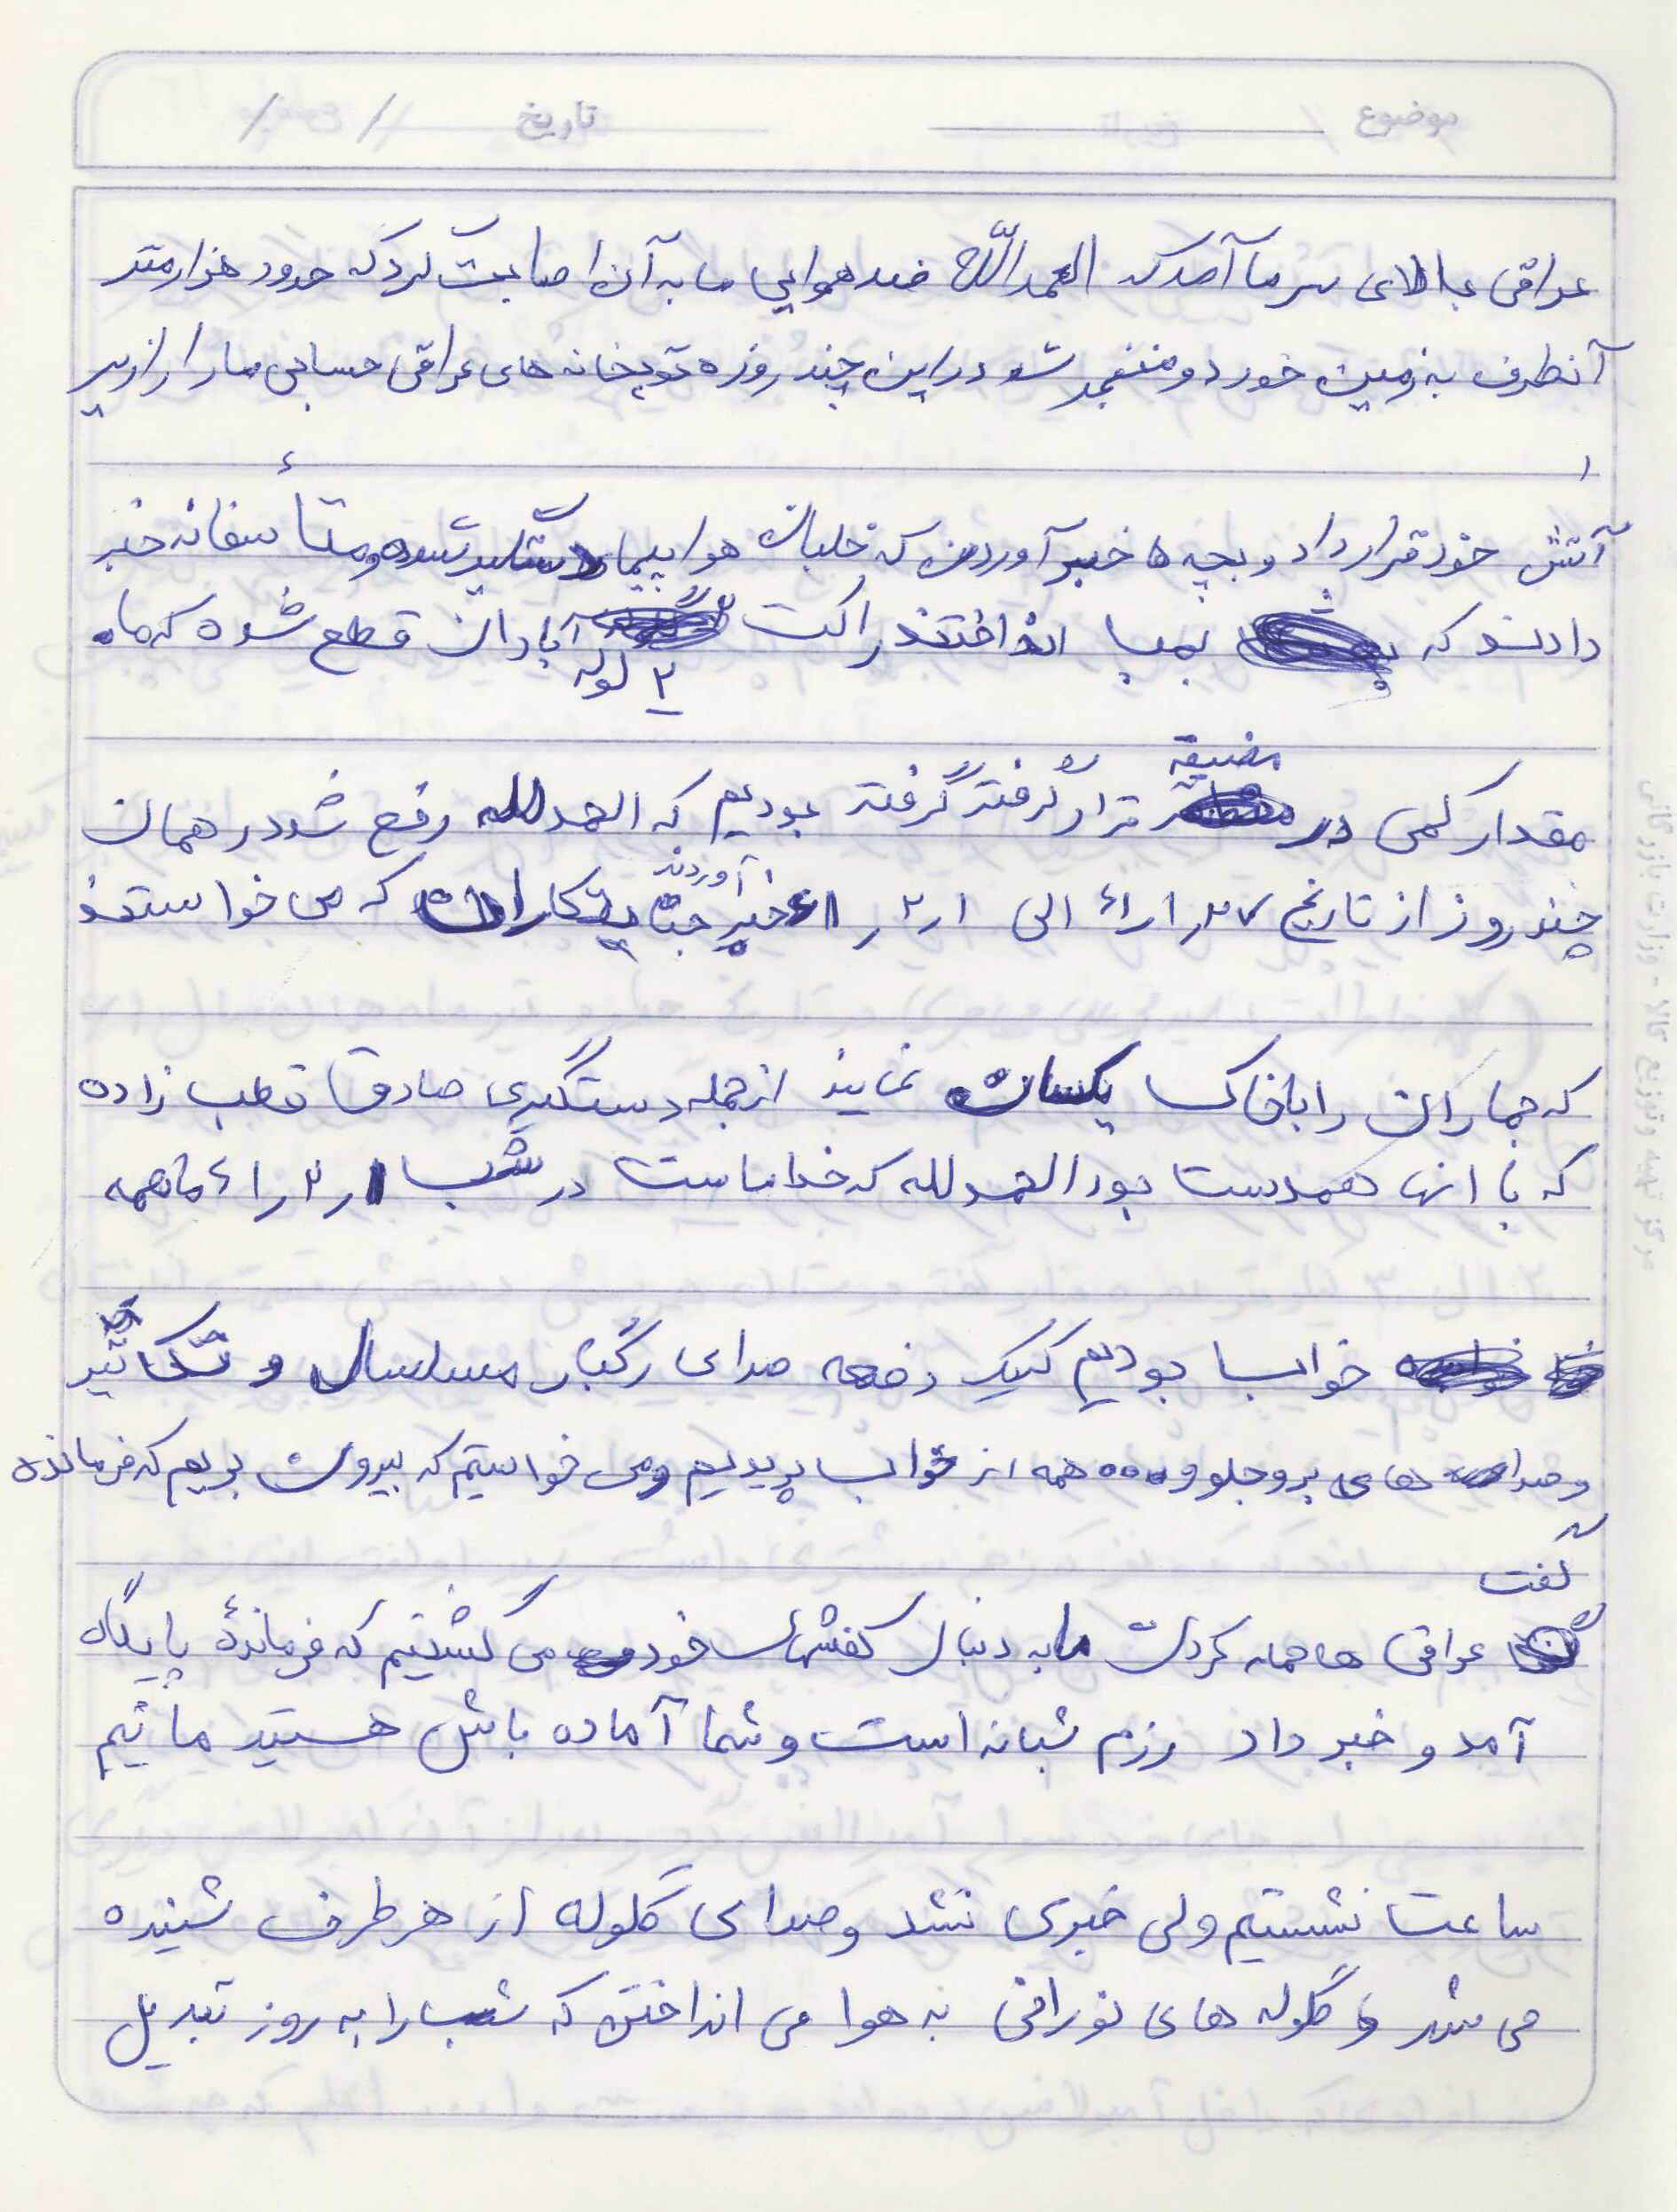 موضوع تاریخ / /
عراقی بالای سر ما آمد که الحمدالله ضد هوایی ما به آن اصابت کرد که حدود هزار متر
آنطرف به زمین خورد و منفجر شد در این چند روزه توپخانه های عراقی حسابی ما را از زیر
آتش خود قرار داد و بچه ها خبر آوردن که خلبان هواپیما دستگیر شده و متأسفانه خبر
دادند که بمب انداختند راکت ۲ لوله آبادان قطع شده که ما
مقدار کمی در مضیقه قرار گرفته گرفته بودیم که الحمدلله رفع شد در همان
چند روز از تاریخ ۲۷ر۱ر۶۱ الی ۱ر۲ر۶۱ خبر آوردند جنایتکاران که می خواستند
که جماران را با خاک یکسان نمایند از جمله دستگیری صادق قطب زاده
که با انها همدست بود الحمدلله که خدا با ماست در شب ۱ر۲ر۶۱ ما همه
خواب بودیم که یک دفعه صدای رگبار مسلسل و تک تیر
و صدا های برو جلو و ... همه از خواب پریدیم و می خواستیم که بیرون بریم که فرمانده
گفت
عراقی ها حمله کردن ما به دنبال کفشهای خود می گشتیم که فرماندهٔ پایگاه
آمد و خبر داد رزم شبانه است و شما آماده باش هستید ما نیم
ساعت نشستیم ولی خبری نشد و صدای گلوله از هر طرف شنیده
می شد و گلوله های نورافی به هوا می انداختن که شب را به روز تبدیل